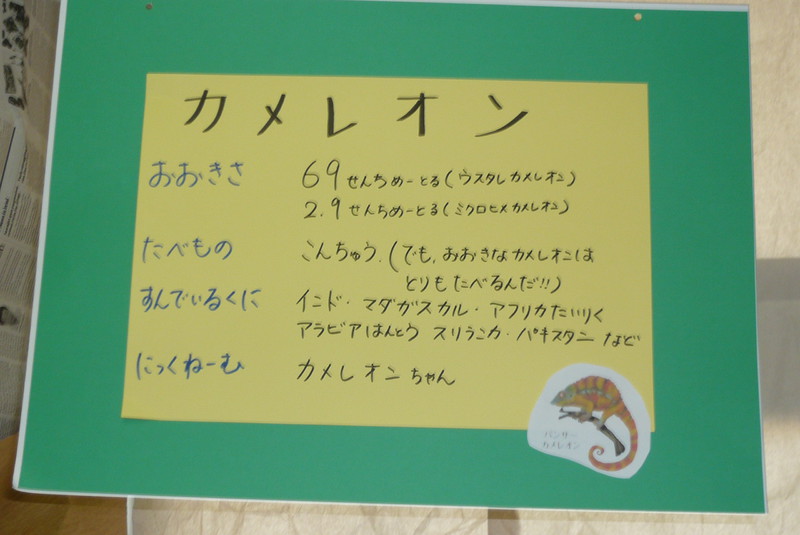 カメレオン
おおきさ 69せんちめーとる(ウスタレカメレオン)
2.9せんちめーとる(ミクロヒメカメレオン)
たべもの こんちゅう.(でも、おおきなカメレオンは
とりもたべるんだ!!)
すんでいるくに インド・マダガスカル・アフリカたいりく
アラビアはんとう スリランカ・パキスタン など
にっくねーむ カメレオンちゃん
パンサー
カメレオン